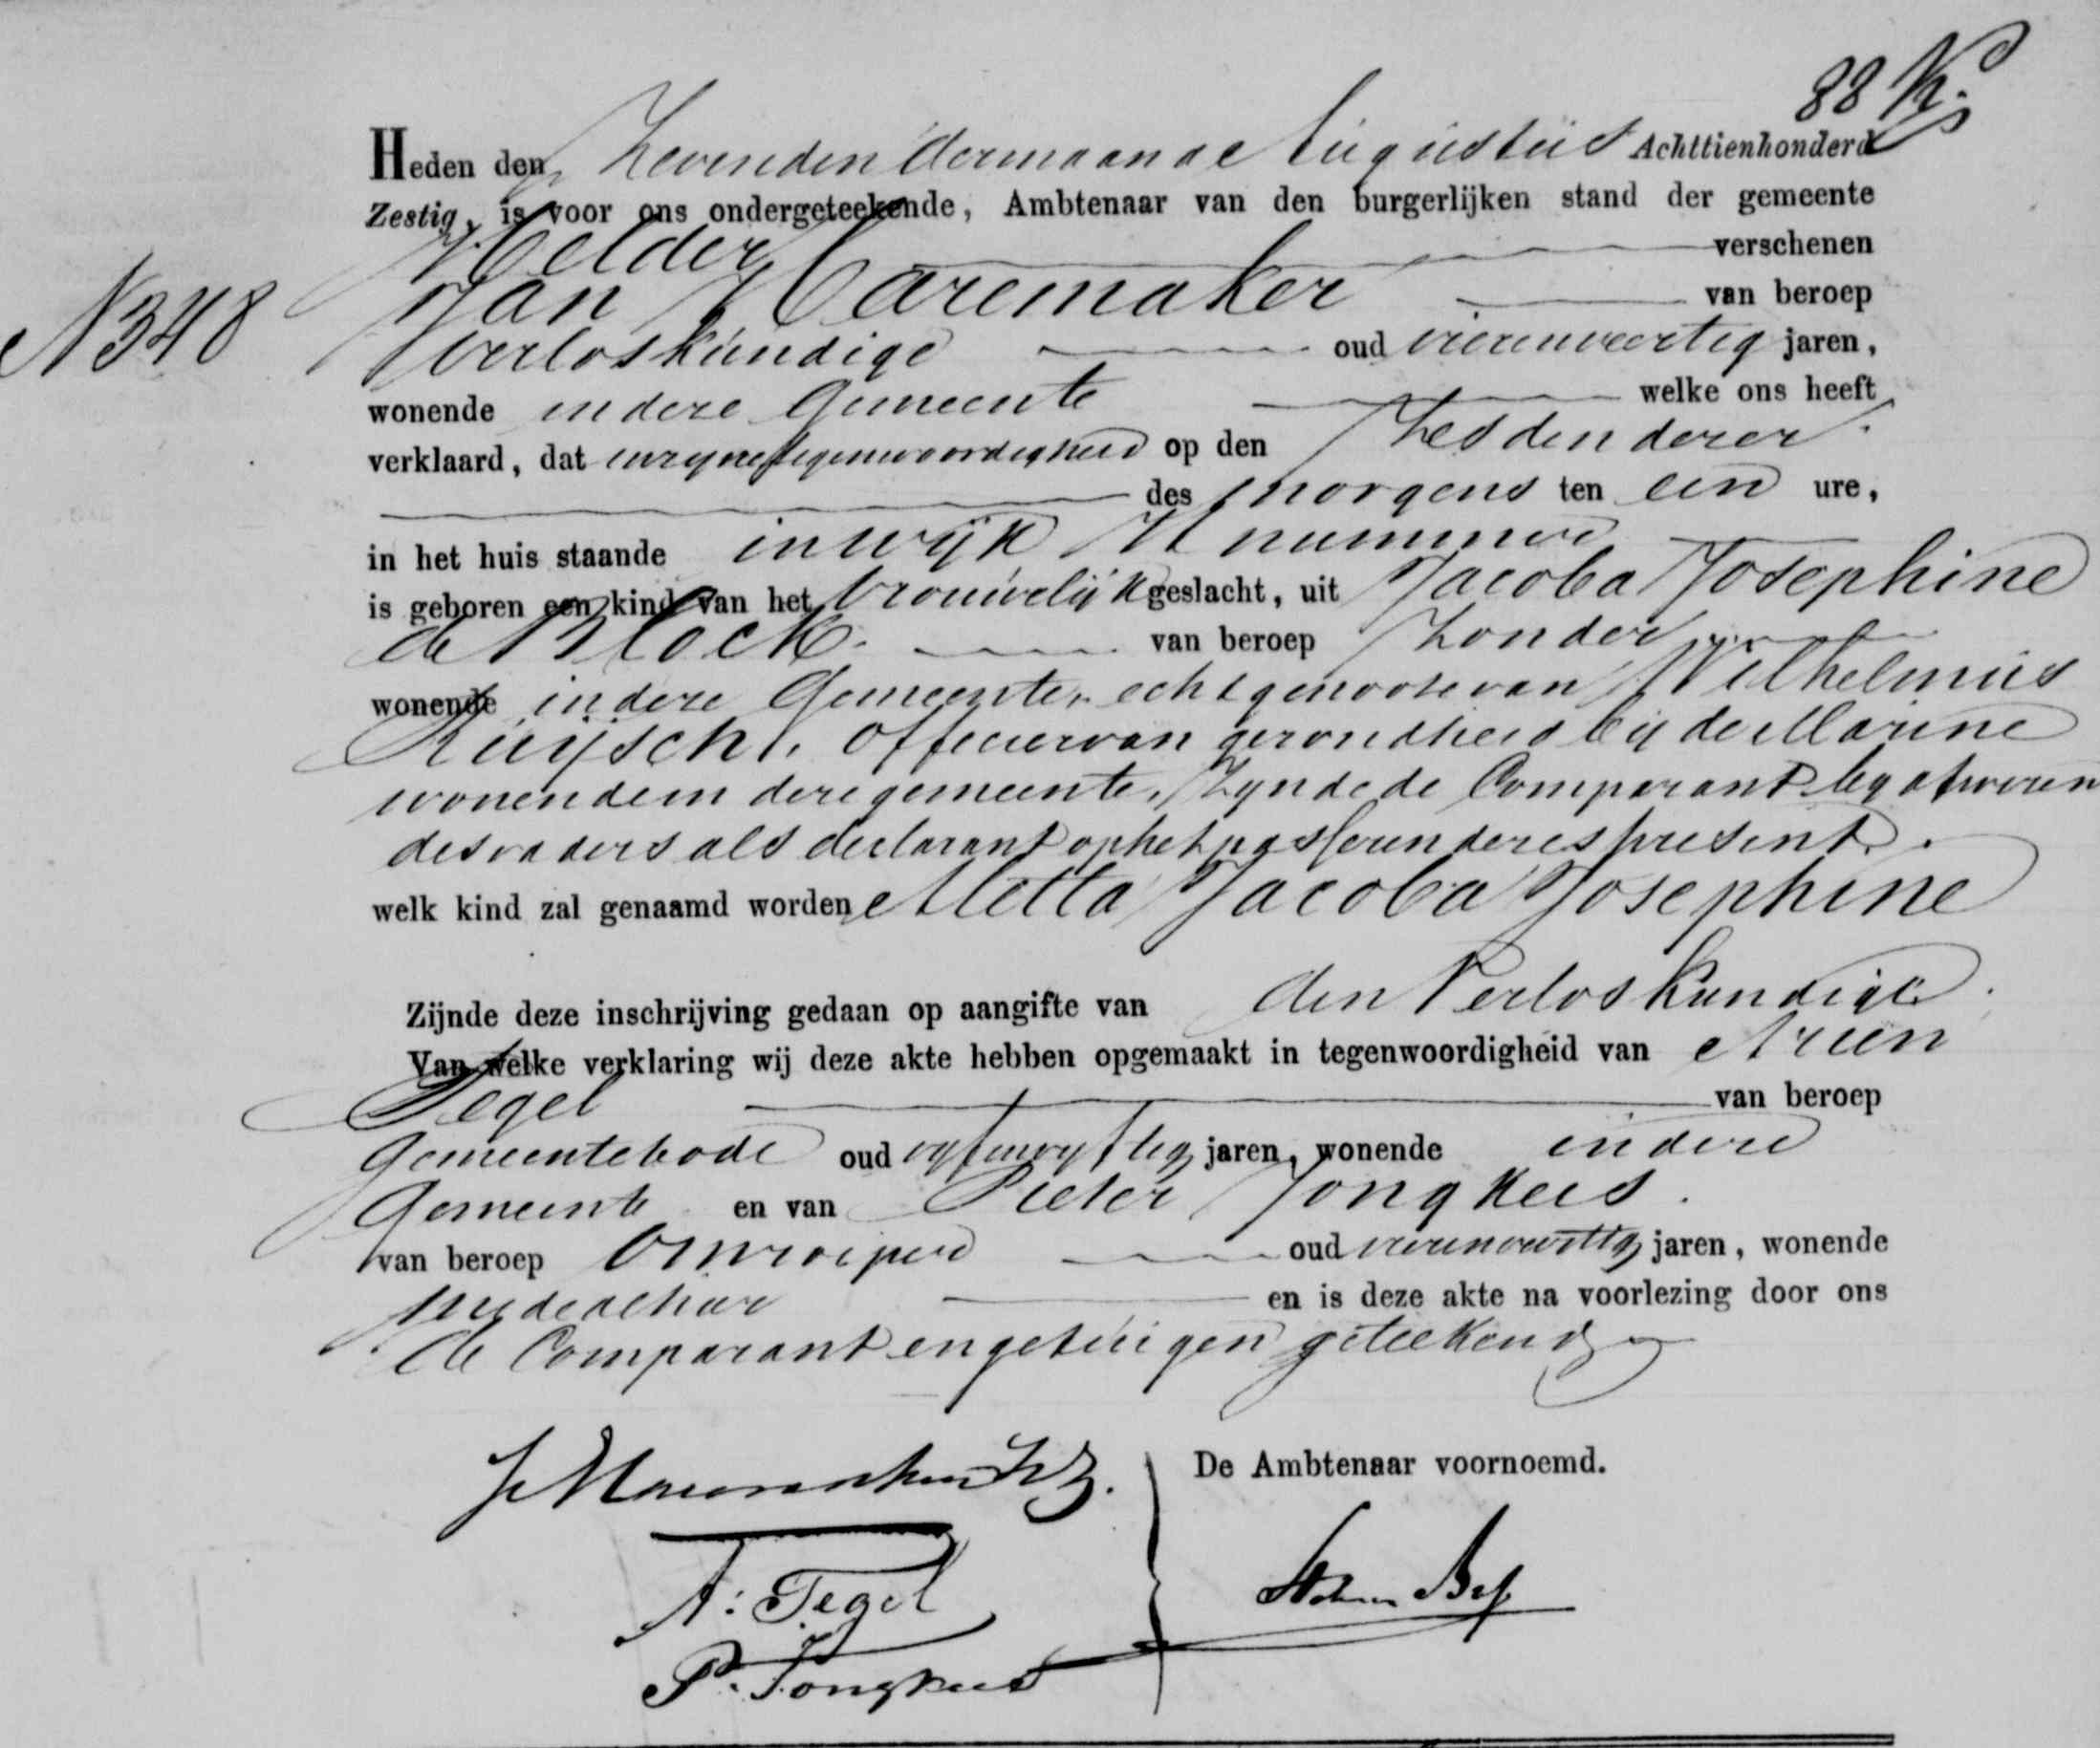 88 K.
Heden den Zevenden der maand Augustus Achttienhonderd
Zestig, is voor ons ondergeteekende, Ambtenaar van den burgerlijken stand der gemeente
Helder verschenen
Jan Maremaker van beroep
Verloskundige oud vierenveertig jaren,
N 348
wonende in dere Gemeente welke ons heeft
verklaard, dat in zijne tegenwoordigheid op den Zesden derer
des morgens ten een ure,
in het huis staande in wijk nummer
is geboren een kind van het Vrouwelijk geslacht, uit Jacoba Josephine
de Block. van beroep Zonder
wonende in dere Gemeente, echtgenoote van Wilhelmus
Ruijsch, Officier van gezondheid bij de Marine
wonende in dere gemeente, Zynde de Comparant by afwezen
des vaders als declarant op het present.
welk kind zal genaamd worden Metta Jacoba Josephine
Zijnde deze inschrijving gedaan op aangifte van den Verloskundige.
Van welke verklaring wij deze akte hebben opgemaakt in tegenwoordigheid van Arien
Tegel van beroep
Gemeentebode oud vyfenvyftig jaren, wonende in dere
Gemeente en van Pieter Jongkees.
van beroep Omroeper oud jaren, wonende
mede alhier en is deze akte na voorlezing door ons
de Comparant en getuigen geteekend
De Ambtenaar voornoemd.
A: Tegel
P. Jongkees